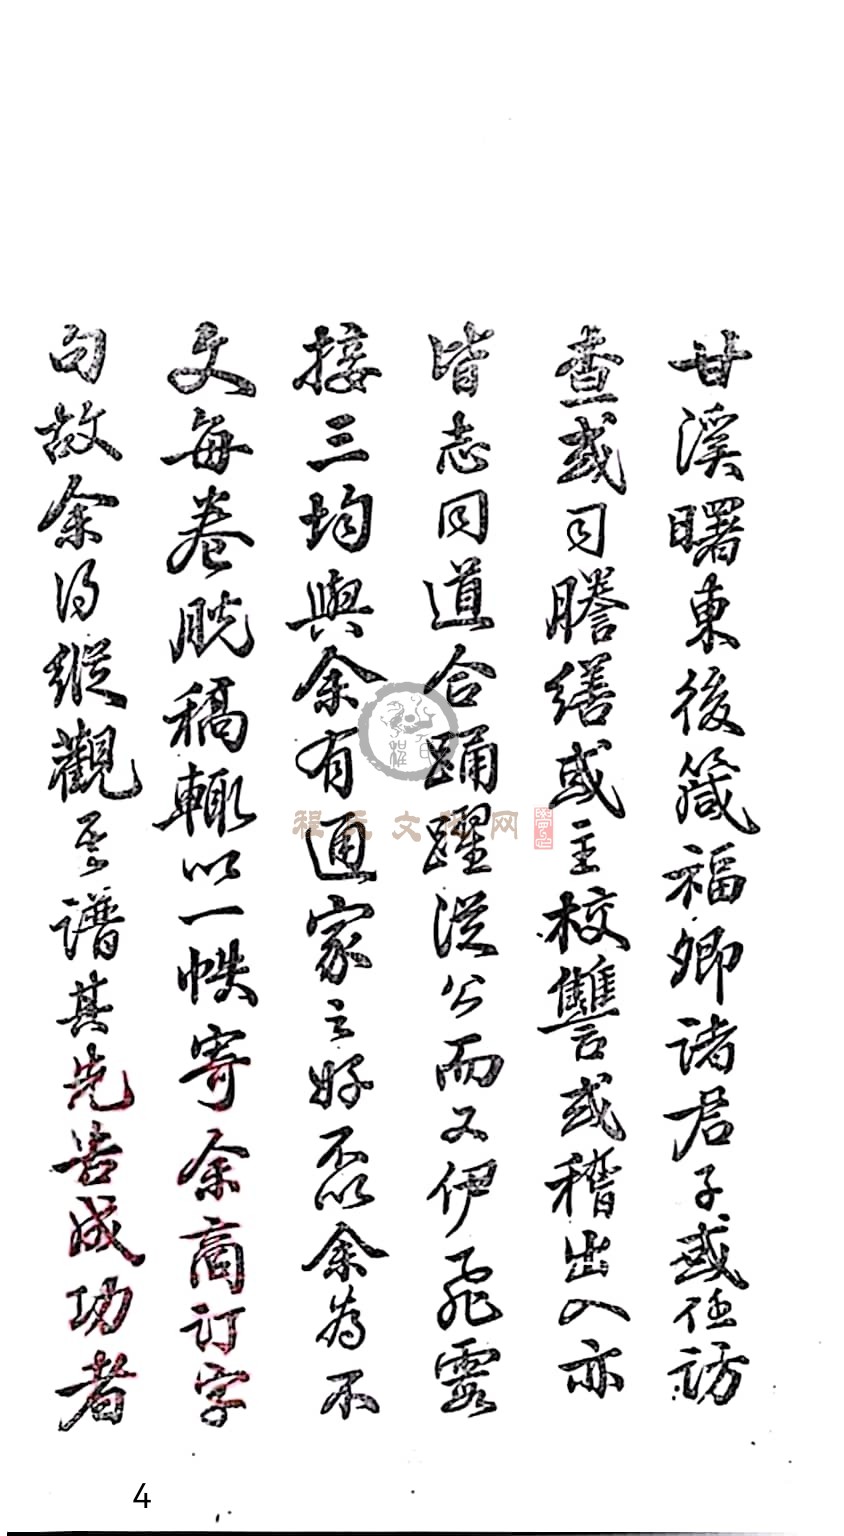 甘溪曙東後箴福卿諸君子或任訪
查或司謄繕或主校讐或稽出入亦
皆志同道合踴躍從公而又伊飛霞
接三均與余有通家之好不以余為不
文每卷脫稿輒以一帙寄余商訂字
句故余得縱觀至譜其先告成功者
程氏文化网
4